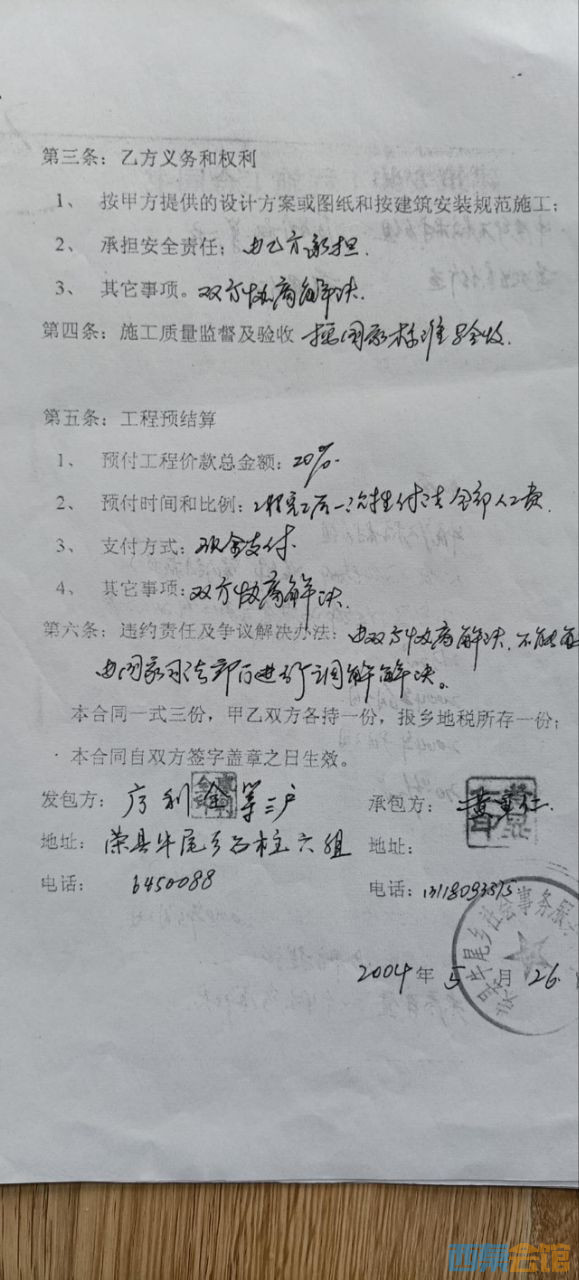 第三条：乙方义务和权利
1、 按甲方提供的设计方案或图纸和按建筑安装规范施工；
2、 承担安全责任；由乙方承担.
3、 其它事项。双方协商解决.
第四条：施工质量监督及验收 按国家标准验收.
第五条：工程预结算
1、 预付工程价款总金额：20%.
2、 预付时间和比例：工程完工后一次性付清全部人工费.
3、 支付方式：现金支付.
4、 其它事项：双方协商解决.
第六条：违约责任及争议解决办法：由双方协商解决.不能
由国家司法部门进行调解解决。
本合同一式三份，甲乙双方各持一份，报乡地税所存一份；
本合同自双方签字盖章之日生效。
发包方： 利金等三户
承包方：黄 仁.
地址：荣县牛尾乡石柱六组
地址：
电话：6450088
电话：
牛尾乡社会事务服
2004年5月26
西东会馆